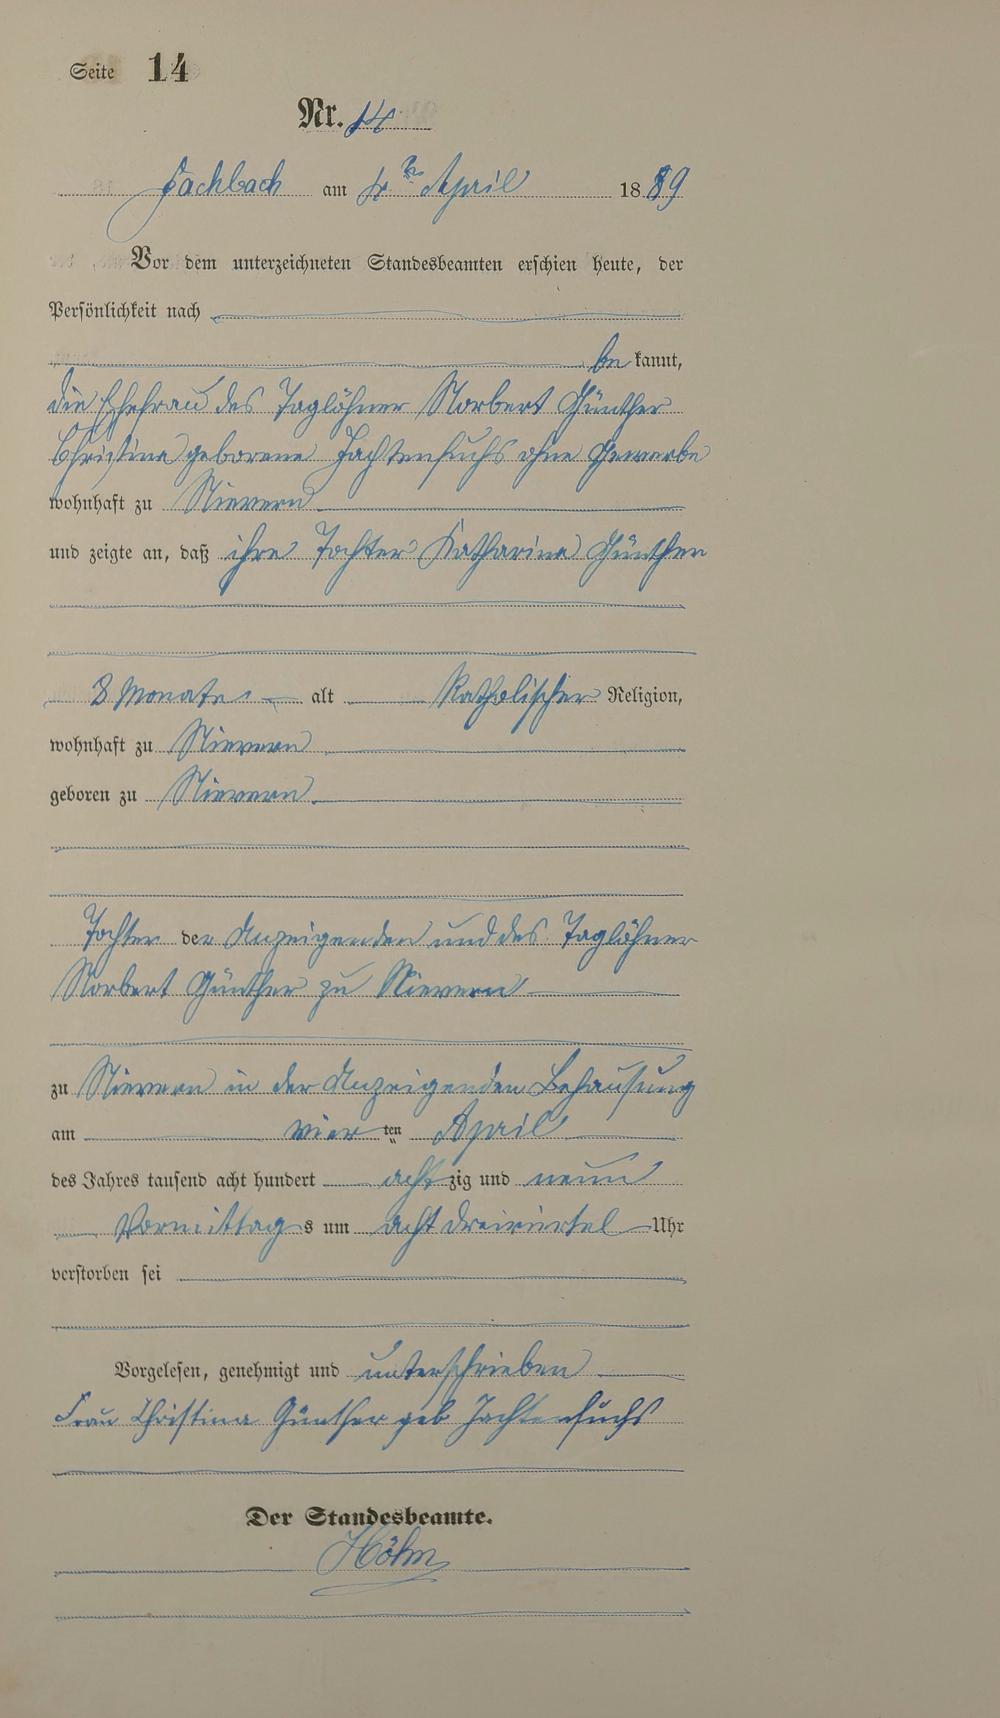 Seite 14
Nr. 14
Fachbach am 4ten April 1889
Vor dem unterzeichneten Standesbeamten erschien heute, der
Persönlichkeit nach
bekannt,
die Ehefrau des Taglöhner Norbert Günther
Christina geborene Jachtenfuchs ohne Gewerbe
wohnhaft zu Nievern
und zeigte an, daß ihre Tochter Katharina Günther
8 Monate alt Katholischer Religion,
wohnhaft zu Nievern
geboren zu Nievern
Tochter der Anzeigenden und des Taglöhner
Norbert Günther zu Nievern
zu Nievern in der Anzeigenden Behausung
am vierten April
des Jahres tausend acht hundert achtzig und neun
Vormittags um acht dreiviertel Uhr
verstorben sei
Vorgelesen, genehmigt und unterschrieben
Frau Christina Günther geb Jachtenfuchs
Der Standesbeamte.
Höhn